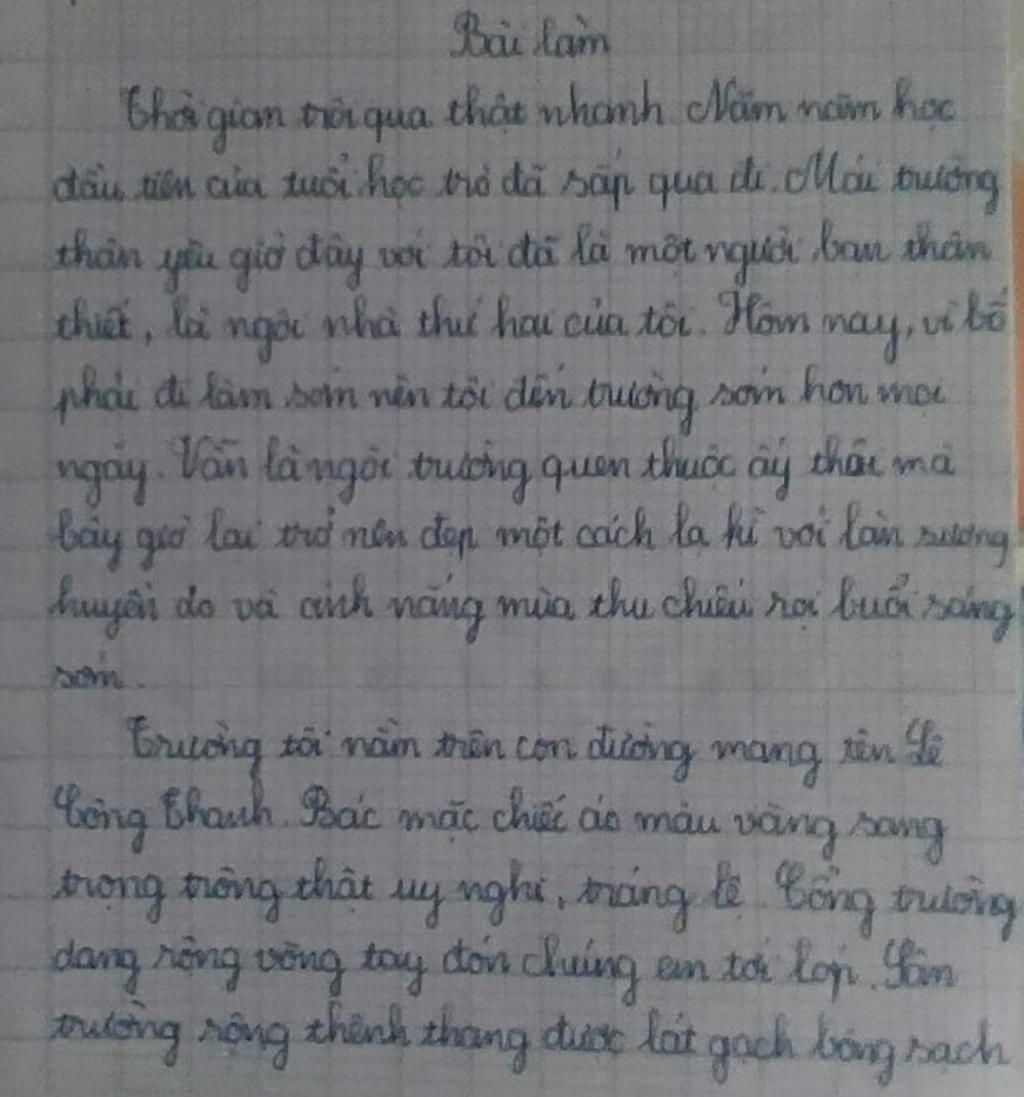 Bài làm
Thời gian trôi qua thật nhanh. Năm năm học
đầu tiên của tuổi học trò đã sắp qua đi. Mái trường
thân yêu giờ đây với tôi đã là một người bạn thân
thiết, là ngôi nhà thứ hai của tôi. Hôm nay, vì bố
phải đi làm sớm nên tôi đến trường sớm hơn mọi
ngày. Vẫn là ngôi trường quen thuộc ấy thôi mà
bây giờ lại trở nên đẹp một cách lạ kì với làn sương
huyền ảo và ánh nắng mùa thu chiếu rọi buổi sáng
sớm.
Trường tôi nằm trên con đường mang tên Lê
Công Thanh. Bác mặc chiếc áo màu vàng sang
trọng trông thật uy nghi, tráng lệ. Cổng trường
dang rộng vòng tay đón chúng em tới lớp. Sân
trường rộng thênh thang được lát gạch bóng sạch